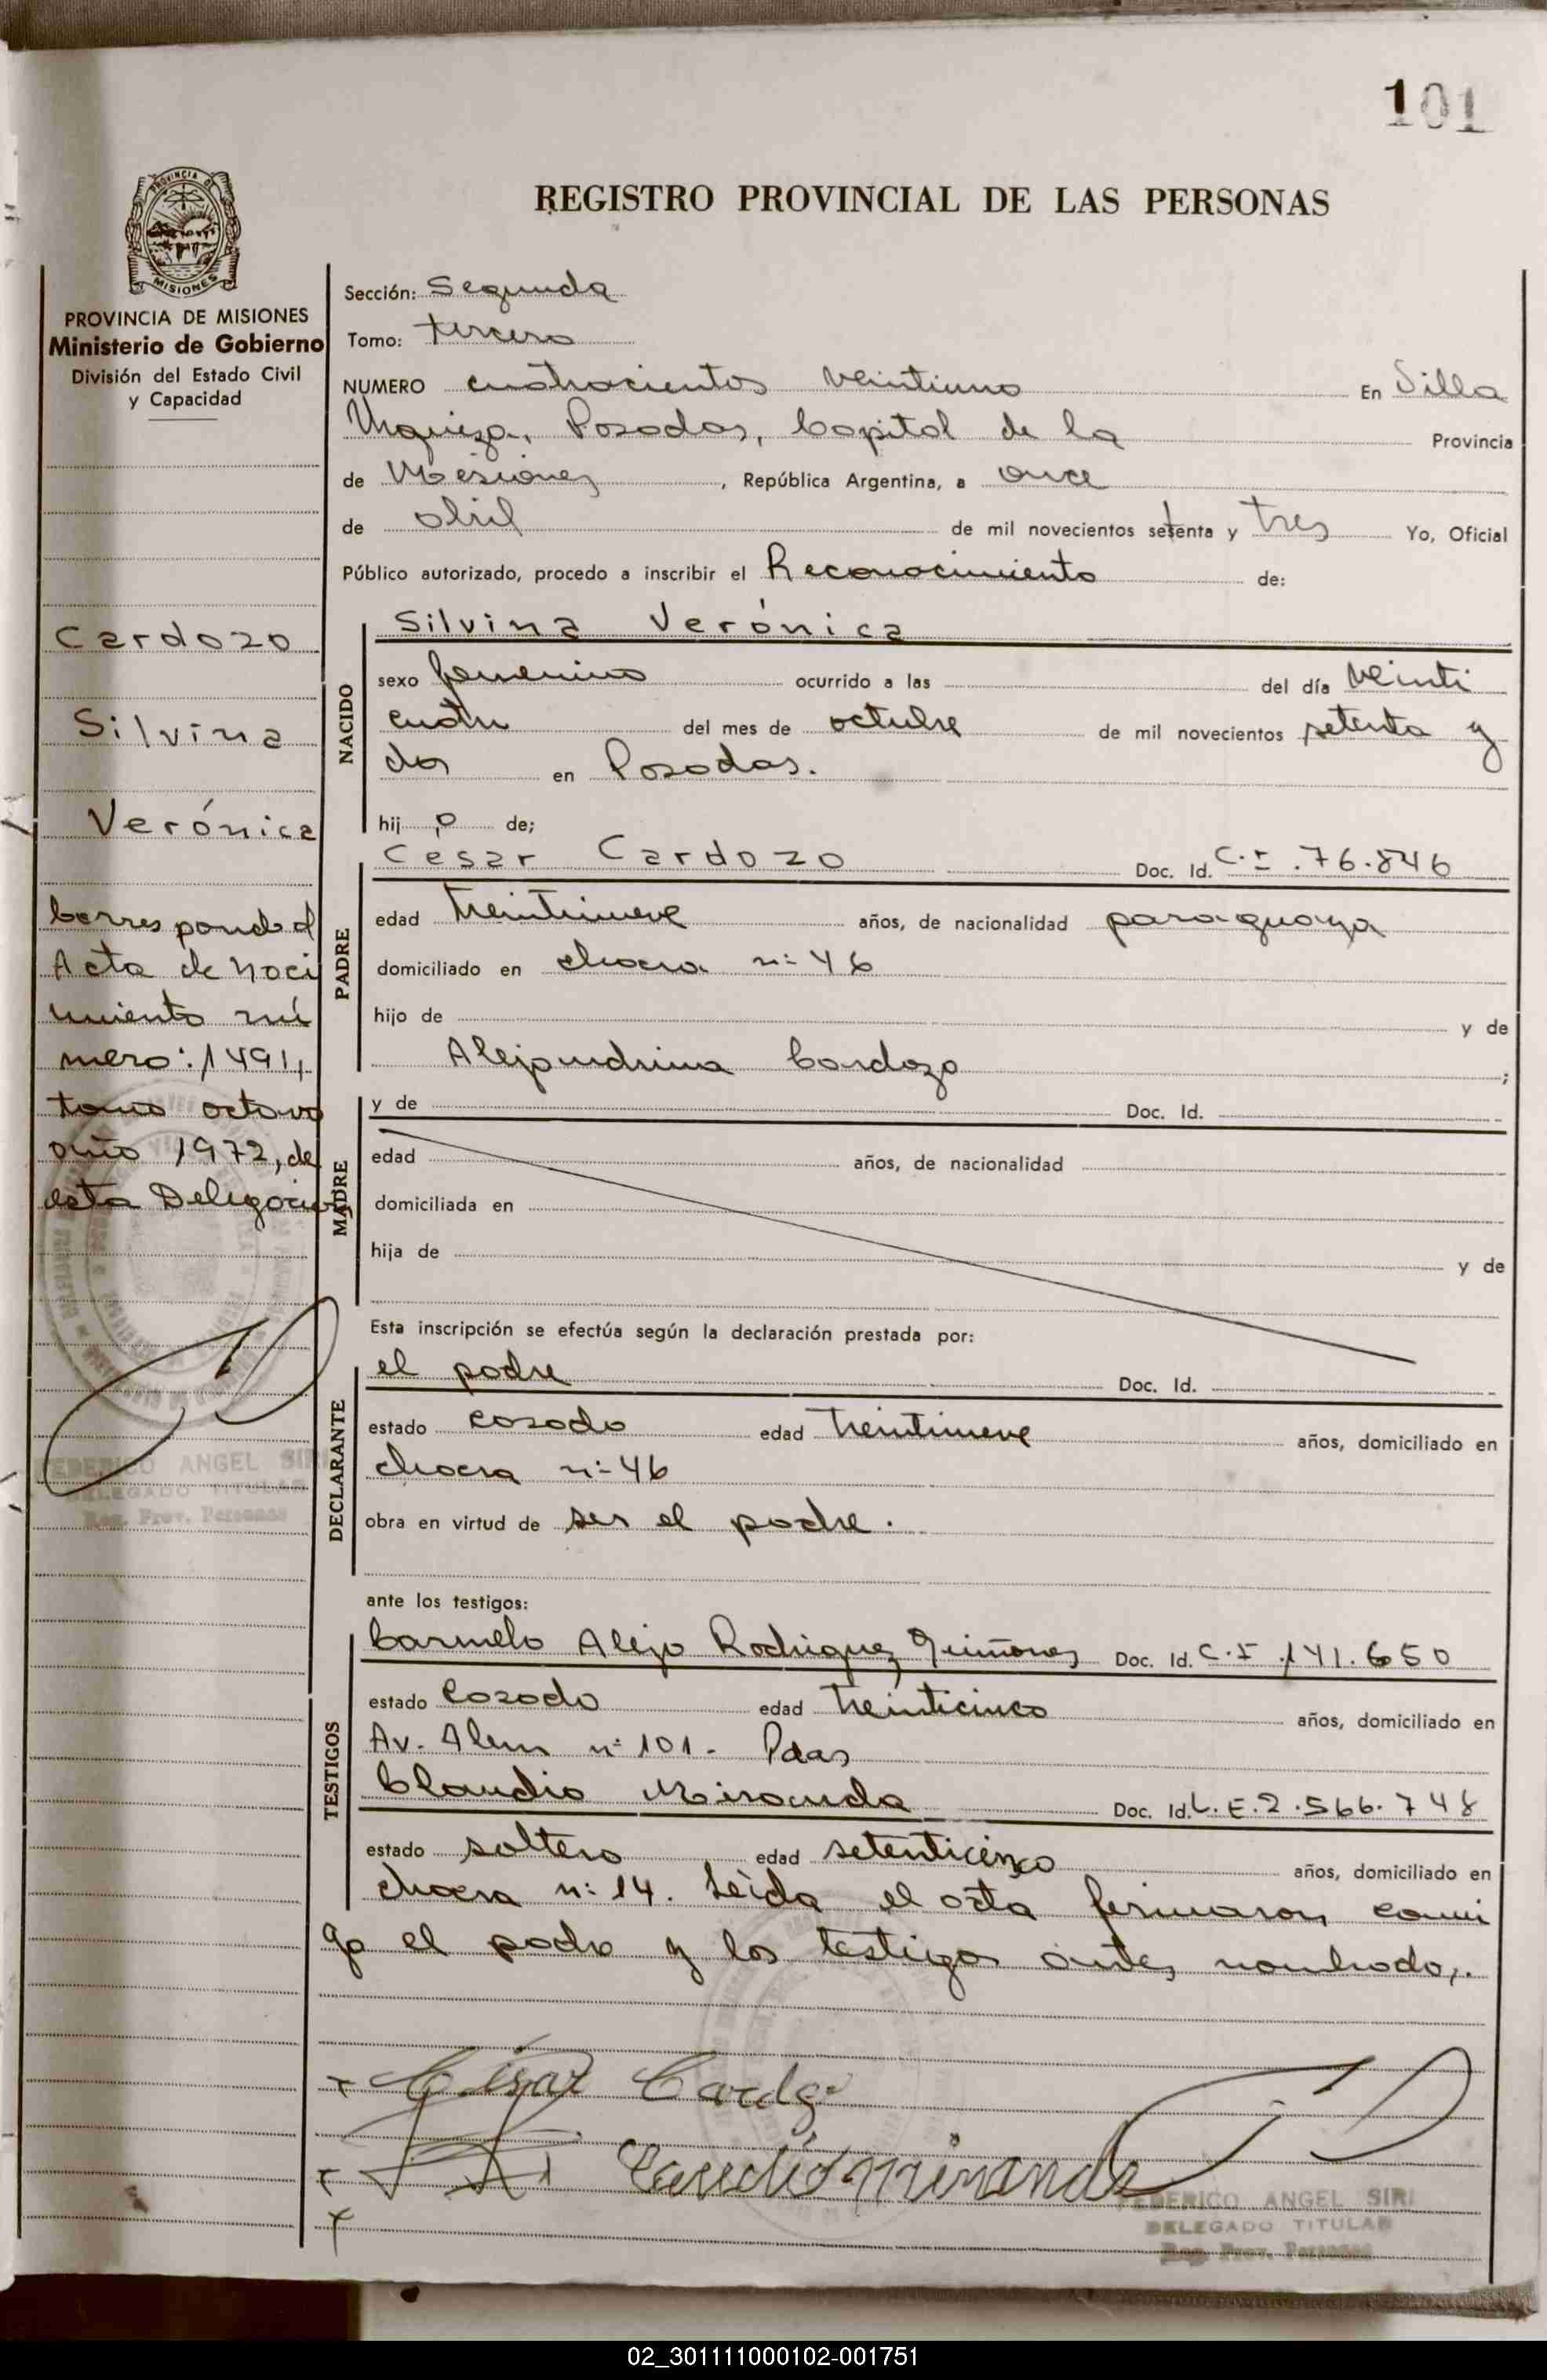 101
PROVINCIA DE
MISIONES
REGISTRO PROVINCIAL DE LAS PERSONAS
PROVINCIA DE MISIONES
Ministerio de Gobierno
División del Estado Civil
y Capacidad
Cardozo
Silvina
Verónica
Corresponde al
Acta de naci
miento nú
mero: 1491,
tomo octavo
año 1972, de
esta Delegación
FEDERICO ANGEL SIRI
DELEGADO TITULAR
Reg. Prov. Personas
Sección: Segunda
Tomo: tercero
NUMERO cuatrocientos veintiuno En Villa
Urquiza, Posadas, Capital de la Provincia
de Misiones, República Argentina, a once
de abril de mil novecientos setenta y tres Yo, Oficial
Público autorizado, procedo a inscribir el Reconocimiento de:
NACIDO
Silvina Verónica
sexo femenino ocurrido a las del día veinti
cuatro del mes de octubre de mil novecientos setenta y
dos en Posadas.
hij a de;
PADRE
Cesar Cardozo Doc. Id. C.I. 76.846
edad treintinueve años, de nacionalidad paraguaya
domiciliado en chacra nº 46
hijo de y de
Alejandrina Cardozo ;
MADRE
y de Doc. Id.
edad años, de nacionalidad
domiciliada en
hija de y de
Esta inscripción se efectúa según la declaración prestada por:
DECLARANTE
el padre Doc. Id.
estado casado edad treintinueve años, domiciliado en
chacra nº 46
obra en virtud de ser el padre.
ante los testigos:
TESTIGOS
Carmelo Alejo Rodriguez Quiñones Doc. Id. C.I. 141.650
estado casado edad treinticinco años, domiciliado en
Av. Alem nº 101- Pdas
Claudio Miranda Doc. Id. L.E. 2.566.748
estado soltero edad setenticinco años, domiciliado en
chacra nº 14. Leida el acta firmaron conmi
go el padre y los testigos antes nombrados.
César Cardozo
Claudio Miranda
FEDERICO ANGEL SIRI
DELEGADO TITULAR
Reg. Prov. Personas
02_301111000102-001751